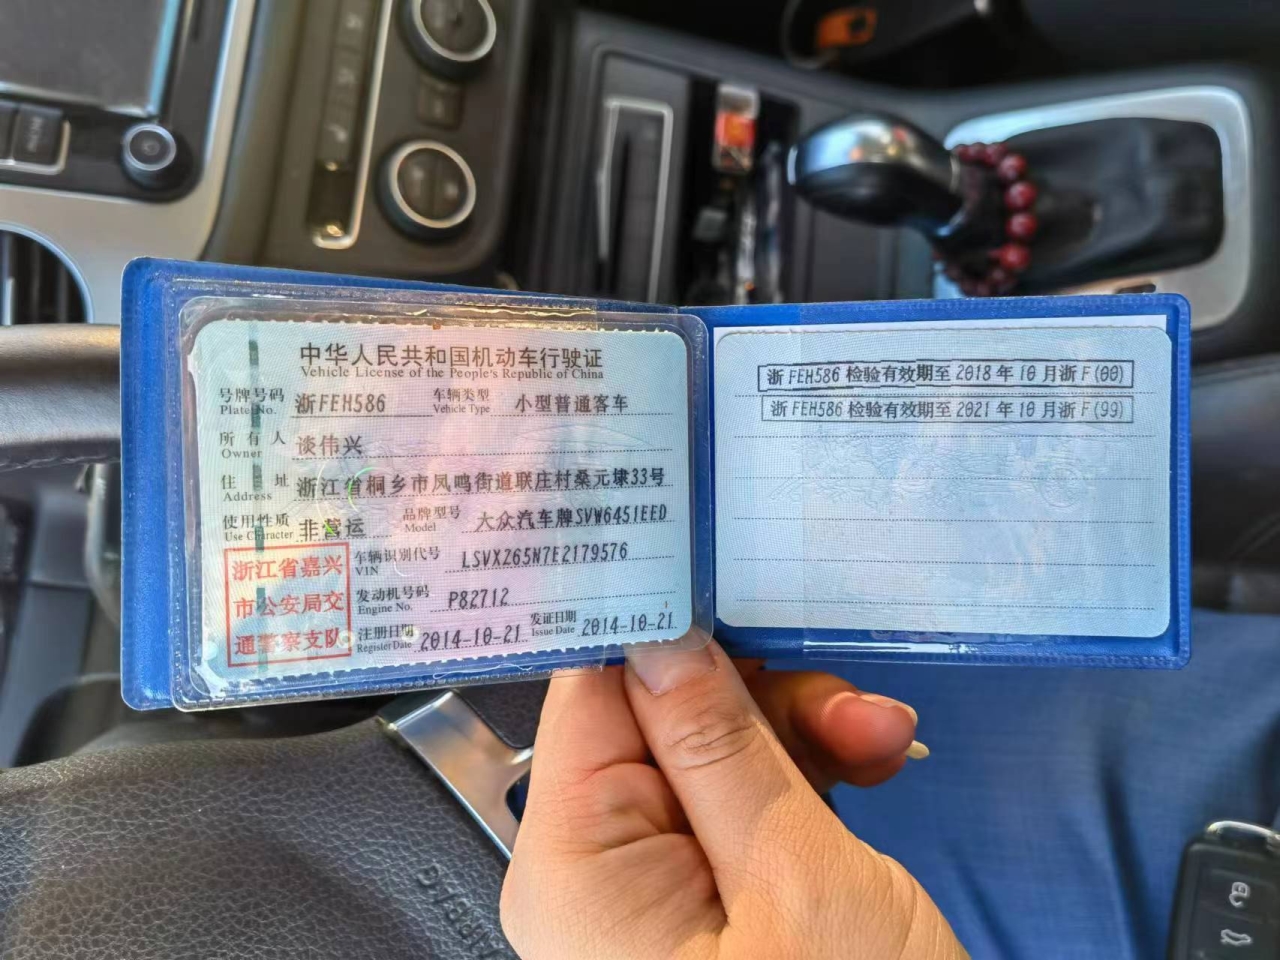 中华人民共和国机动车行驶证
Vehicle License of the People's Republic of China
号牌号码 浙FEH586 车辆类型 小型普通客车
Plate No. Vehicle Type
所有人 谈伟兴
Owner
住址 浙江省桐乡市凤鸣街道联庄村桑元埭33号
Address
使用性质 非营运 品牌型号 大众汽车牌SVW6451EED
Use Character Model
浙江省嘉兴
市公安局交
通警察支队
车辆识别代号 LSVXZ65N7E2179576
VIN
发动机号码 P82712
Engine No.
注册日期 2014-10-21 发证日期 2014-10-21
Register Date Issue Date
浙FEH586检验有效期至2018年10月浙F(00)
浙FEH586检验有效期至2021年10月浙F(99)
AIRBAG